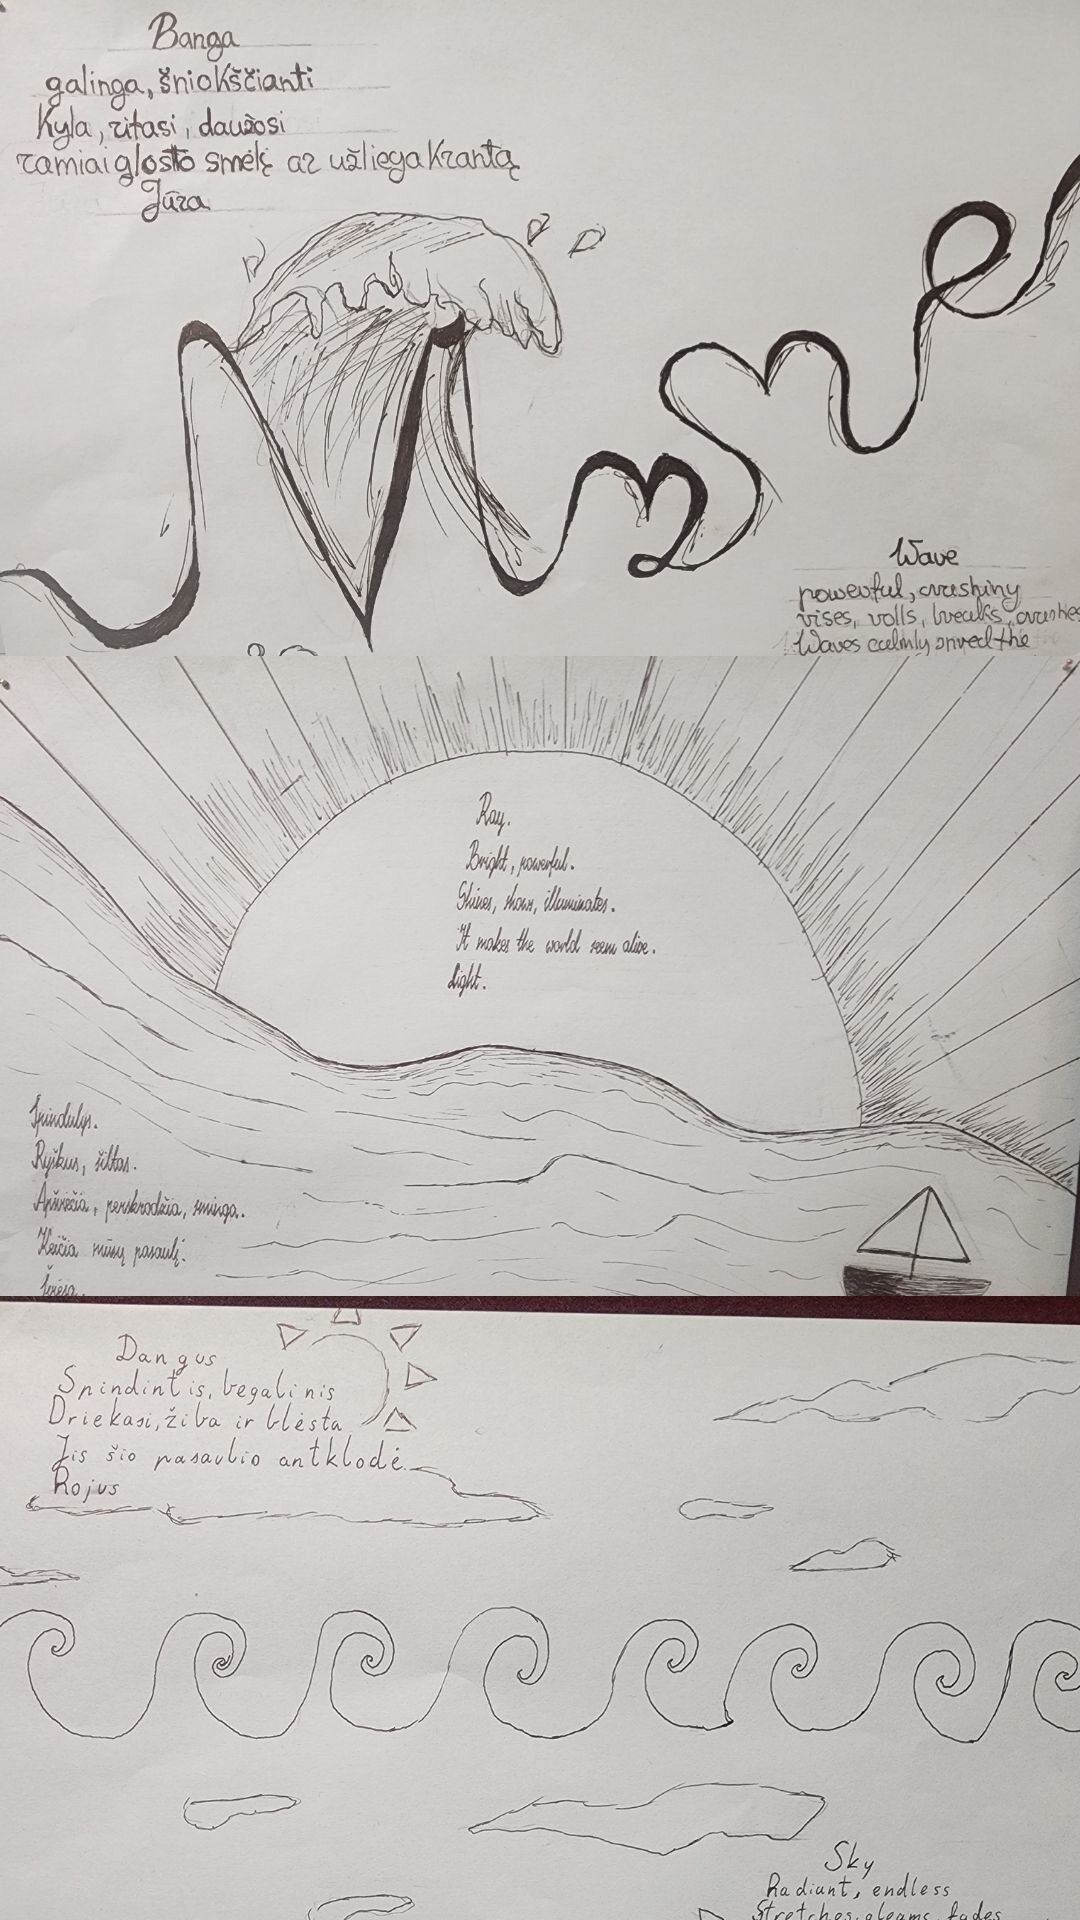 Banga
galinga, šniokščianti
Kyla, ritasi, daužosi
ramiai glosto smėlį ar užliega krantą
Jūra
Wave
powerful, crushing
rises, rolls, breaks, crushes
Waves calmly the
Ray.
Bright, powerful.
Shines, shows, illuminates.
It makes the world seem alive.
Light.
Spindulys.
Ryškus, šiltas.
Apšviečia, perskrodžia, sminga.
Keičia mūsų pasaulį.
Šviesa.
Dangus
Spindintis, begalinis
Driekasi, žiba ir blėsta
Jis šio pasaulio antklodė
Rojus
Sky
Radiant, endless
Stretches, gleams, fades